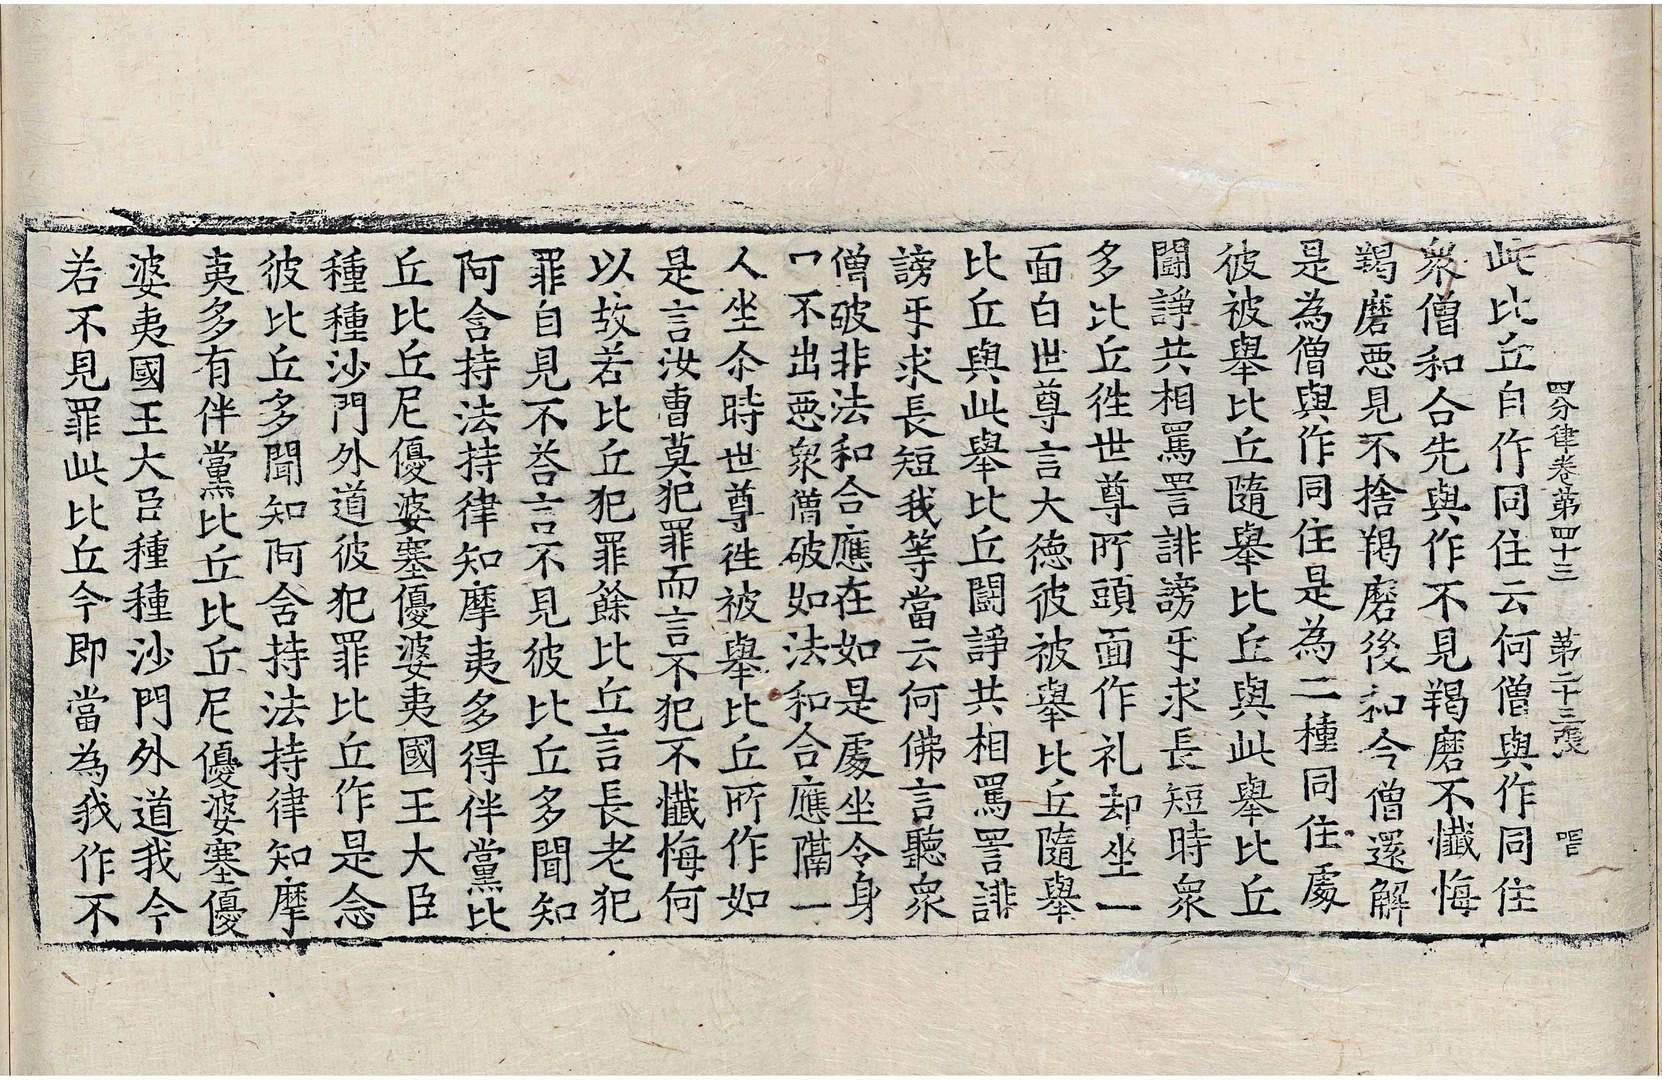 四分律卷第四十三　第二十三張
此比丘自作同住云何僧與作同住
衆僧和合先與作不見羯磨不懺悔
羯磨惡見不捨羯磨後和合僧還解
是為僧與作同住是為二種同住處
彼被舉比丘隨舉比丘與此舉比丘
鬪諍共相罵詈誹謗㸦求長短時衆
多比丘徃世尊所頭面作礼却坐一
面白世尊言大德彼被舉比丘隨舉
比丘與此舉比丘鬪諍共相罵詈誹
謗㸦求長短我等當云何佛言聽衆
僧破非法和合應在如是處坐令身
口不出惡衆僧破如法和合應隔一
人坐尒時世尊徃被舉比丘所作如
是言汝曹莫犯罪而言不犯不懺悔何
以故若比丘犯罪餘比丘言長老犯
罪自見不荅言不見彼比丘多聞知
阿含持法持律知摩夷多得伴黨比
丘比丘尼優婆塞優婆夷國王大臣
種種沙門外道彼犯罪比丘作是念
彼比丘多聞知阿含持法持律知摩
夷多有伴黨比丘比丘尼優婆塞優
婆夷國王大臣種種沙門外道我今
若不見罪此比丘今即當為我作不